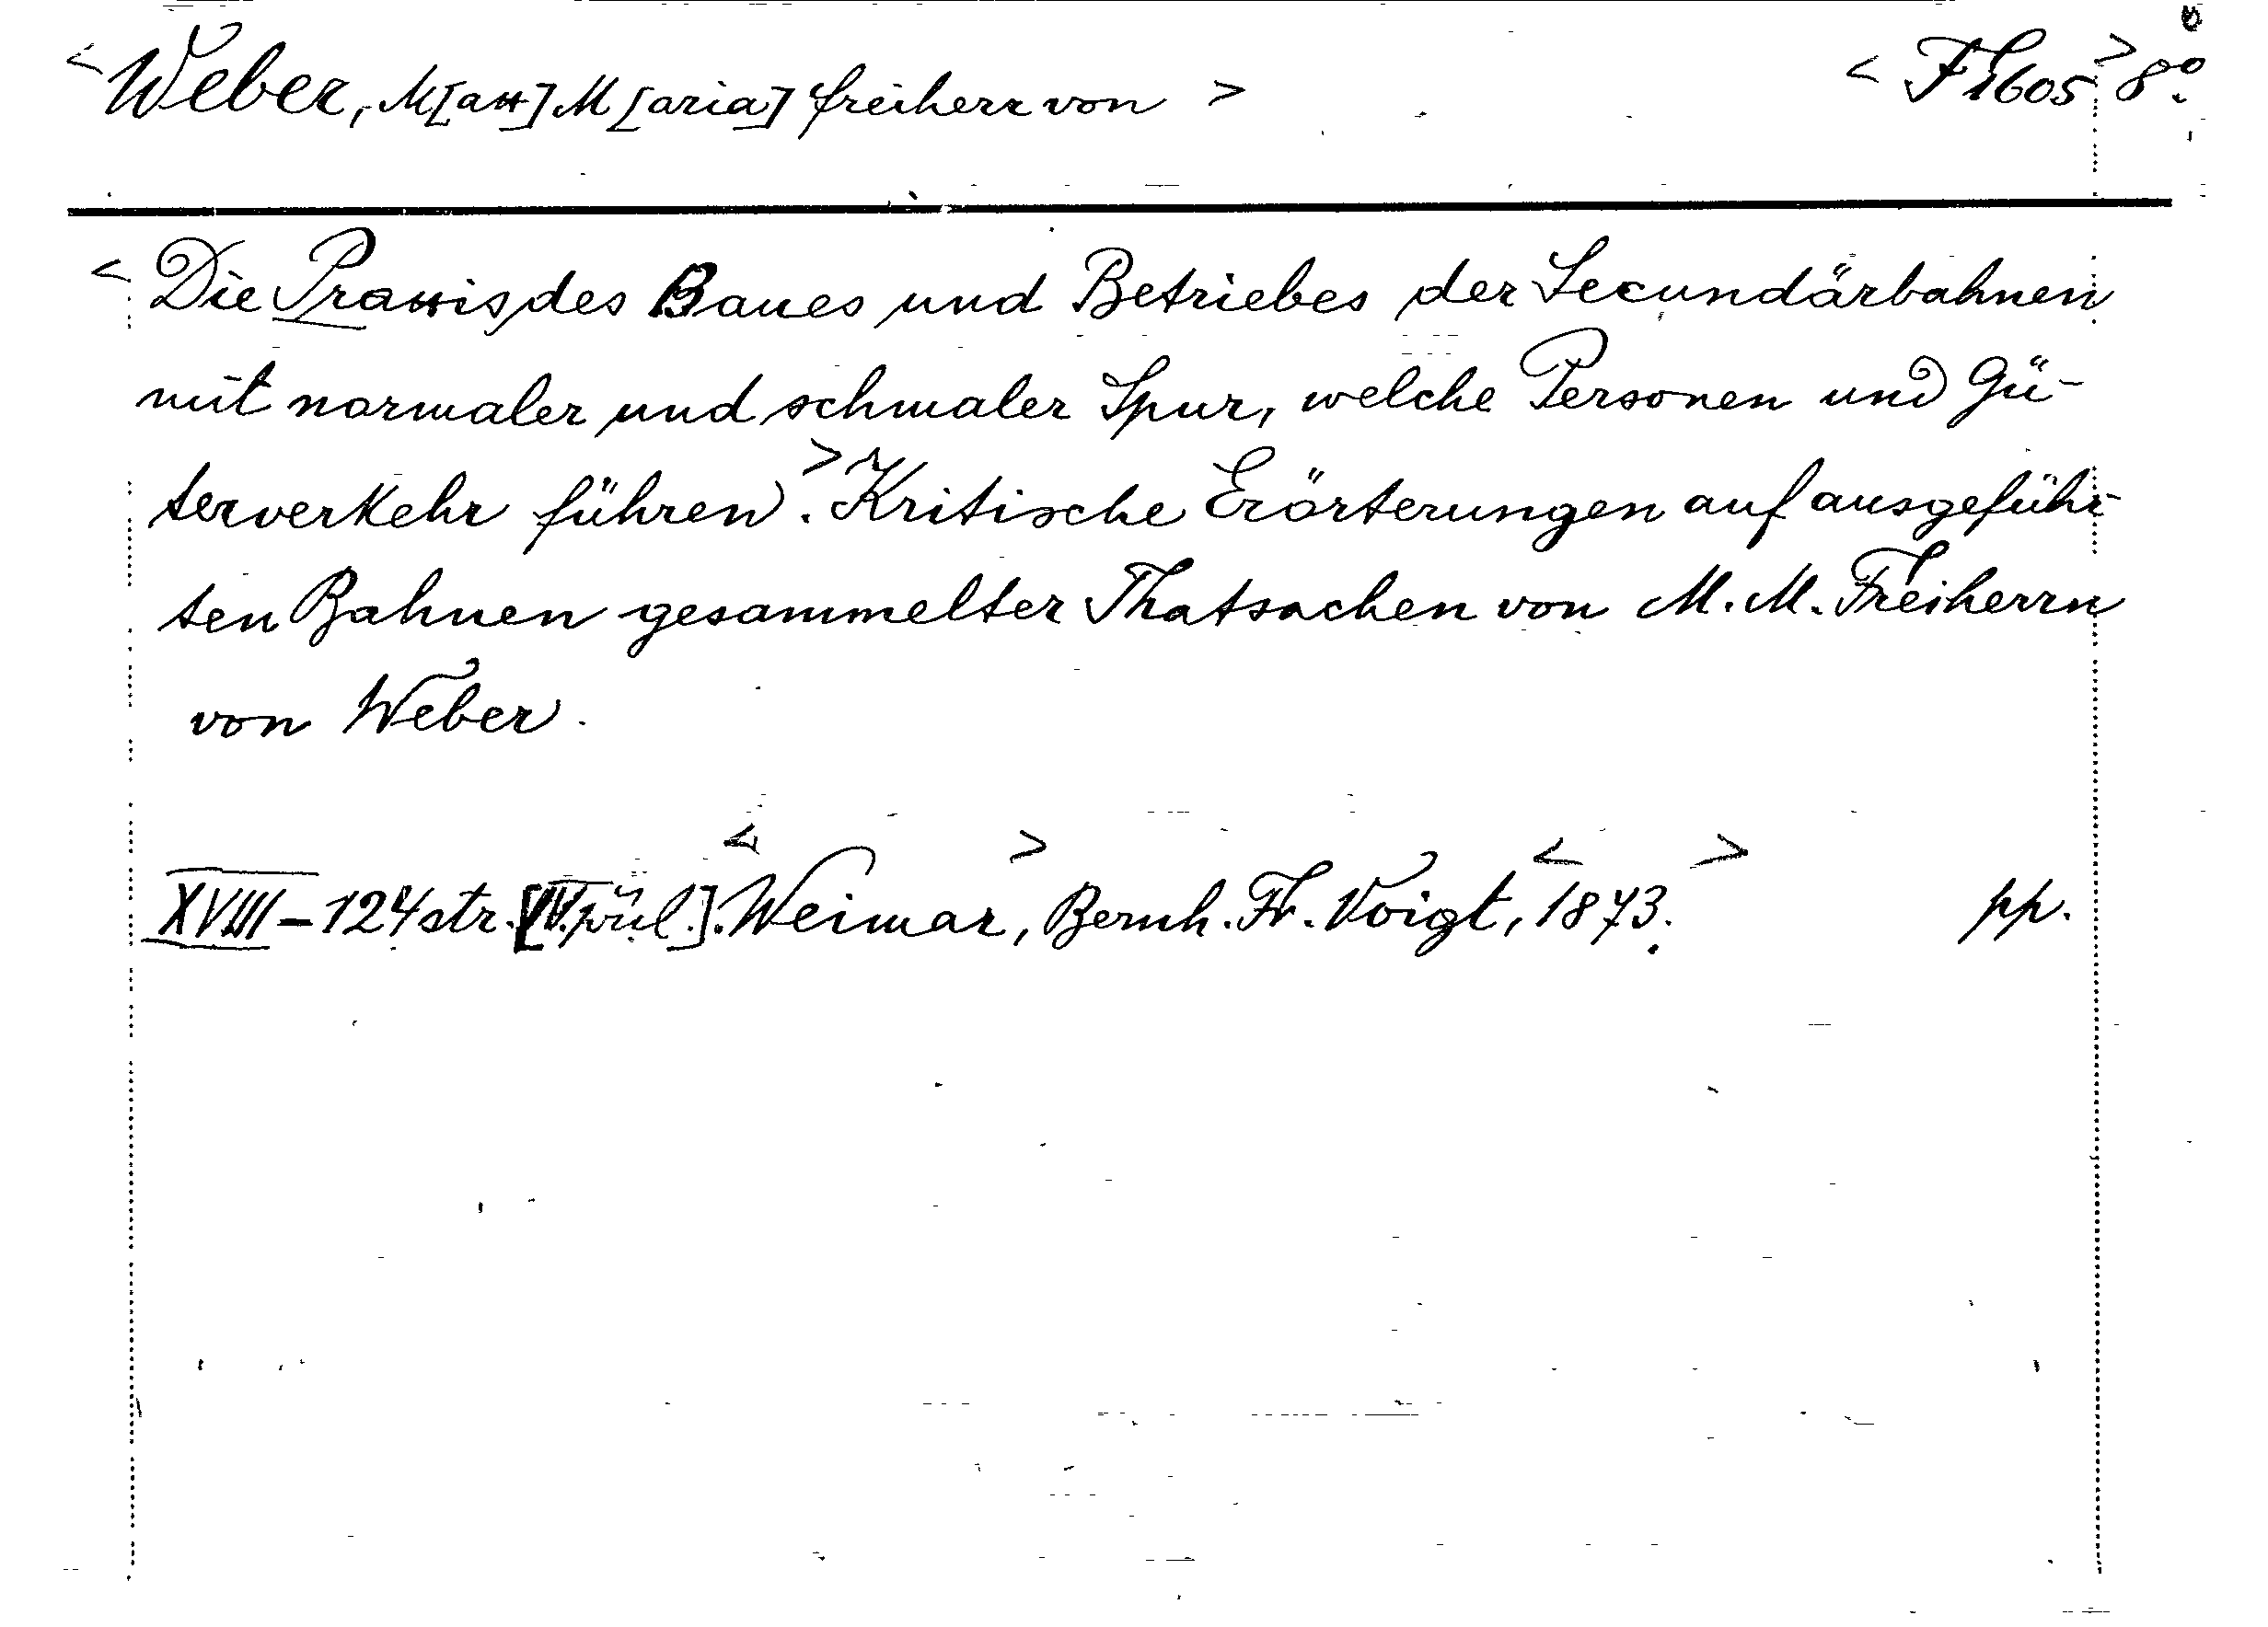 < Weber, M[ax] M[aria] Freiherr von > < F 1605 > 8º.
< Die Praxis des Baues und Betriebes der Secundärbahnen
mit normaler und schmaler Spur, welche Personen und Gü-
terverkehr führen >. Kritische Erörterungen auf ausgeführ-
ten Bahnen gesammelter Thatsachen von M. M. Freiherrn
von Weber.
XVIII – 124 str. [IV. příl.]. < Weimar >, Bernh. Fr. Voigt, < 1873 >. pp.